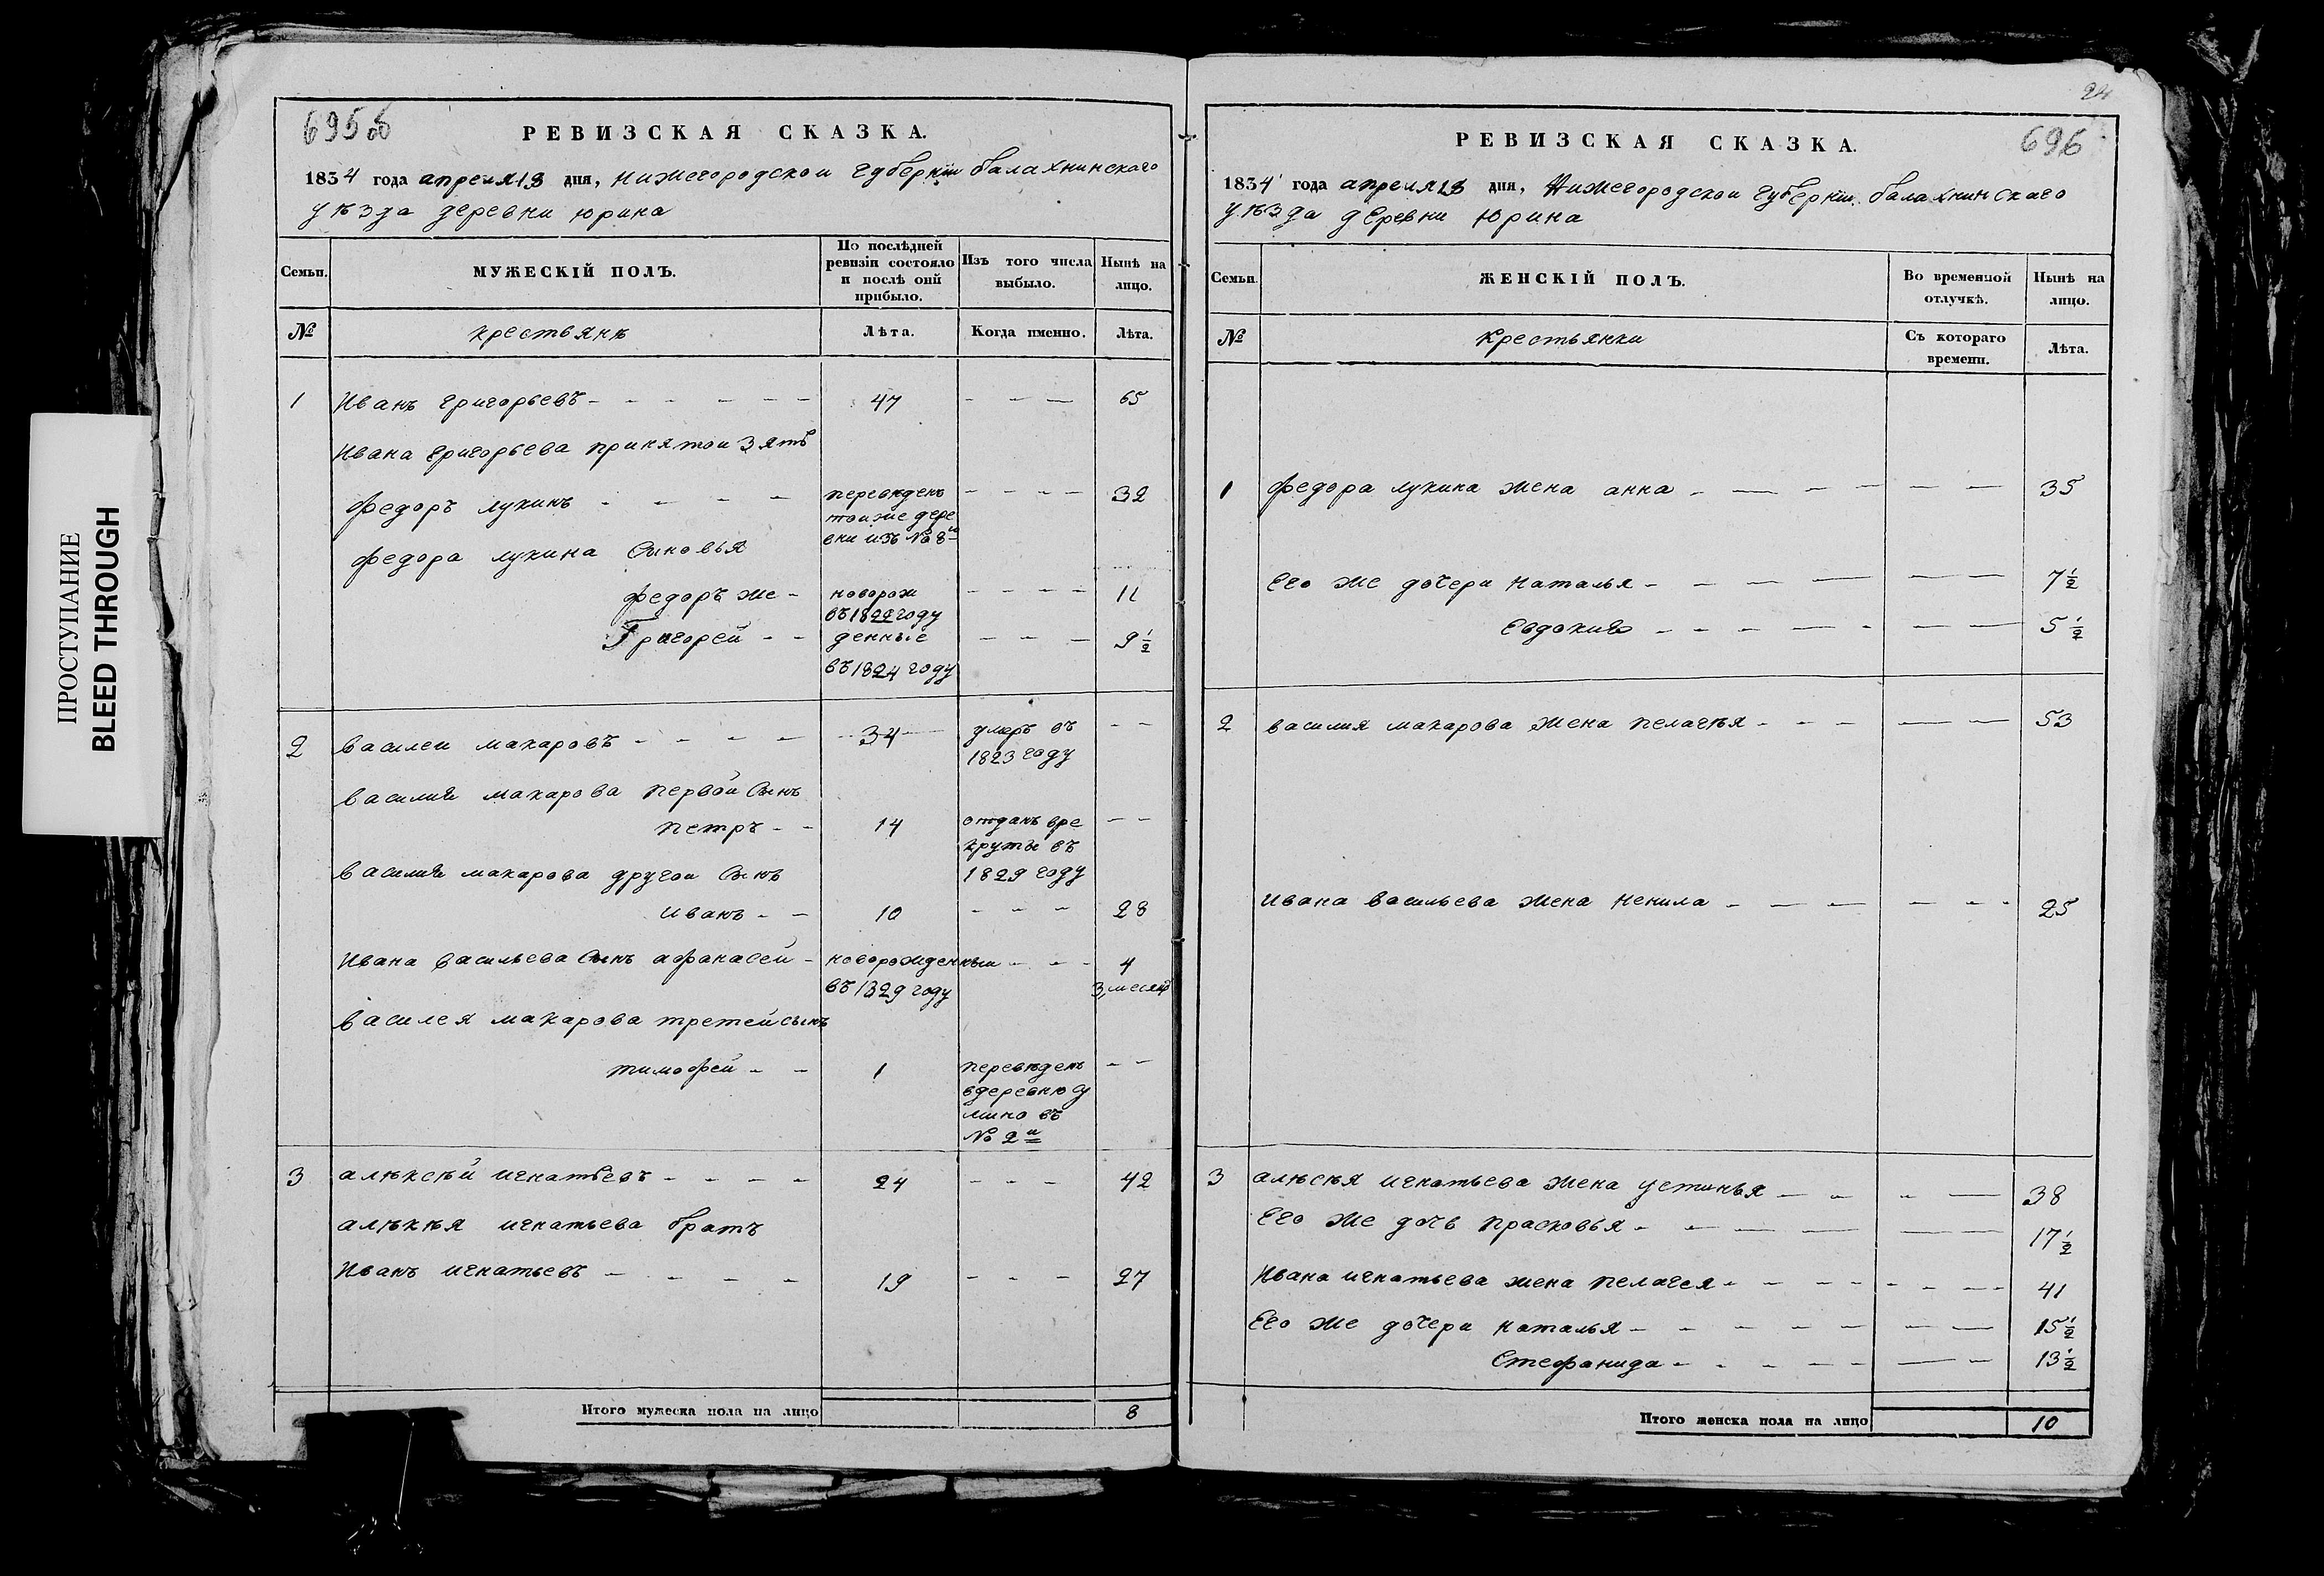 ПРОСТУПАНИЕ
BLEED THROUGH
695 об
РЕВИЗСКАЯ СКАЗКА.
1834 года апреля 13 дня, нижегородскои губернiи балахнинскаго
уѣзда деревни юрина
Семьи.
МУЖЕСКIЙ ПОЛЪ.
По послѣдней
ревизiи состояло
и послѣ онй
прибыло.
Изъ того числа
выбыло.
Нынѣ на
лицо.
№
крестьянѣ
Лѣта.
Когда именно.
Лѣта.
1 Иванъ григорьевъ 47 65
Ивана григорьева принятои зять
федоръ лукинъ переведенъ 32
тоиже дере
вни изъ №8го
федора лукина сыновья
федоръ же новорож 11
въ 1822 году
Григореи денные 9 1/2
въ 1824 году
2 василеи макаровъ 34 умеръ въ
1823 году
василия макарова первои сынъ
петръ 14 отданъ вре
круты въ
василия макарова другои сынъ 1829 году
иванъ 10 28
Ивана васильева сынъ афанасеи новорожденныи 4
въ 1829 году 3, месяц
василея макарова третеи сынъ
тимофеи 1 переведенъ
вдеревню су
мино въ
№ 2и
3 алѣксѣи игнатьевъ 24 42
алѣкѣя игнатьева братъ
Иванъ игнатьевъ 19 27
Итого мужеска пола на лицо 8
24
696
РЕВИЗСКАЯ СКАЗКА.
1834 года апреля 13 дня, Нижегородскои губернiи балахнинскаго
уѣзда деревни юрина
Семьи.
ЖЕНСКIЙ ПОЛЪ.
Во временной
отлучкѣ.
Нынѣ на
лицо.
№
крестьянки
Съ котораго
времени.
Лѣта.
1 федора лукина жена анна 35
Его же дочери наталья 7 1/2
Евдокия 5 1/2
2 василия макарова жена пелагѣя 53
Ивана васильева жена ненила 25
3 алѣсѣя игнатьева жена устинья 38
Его же дочь прасковья 17 1/2
Ивана игнатьева жена пелагея 41
Его же дочери наталья 15 1/2
Стефанида 13 1/2
Итого женска пола на лицо 10